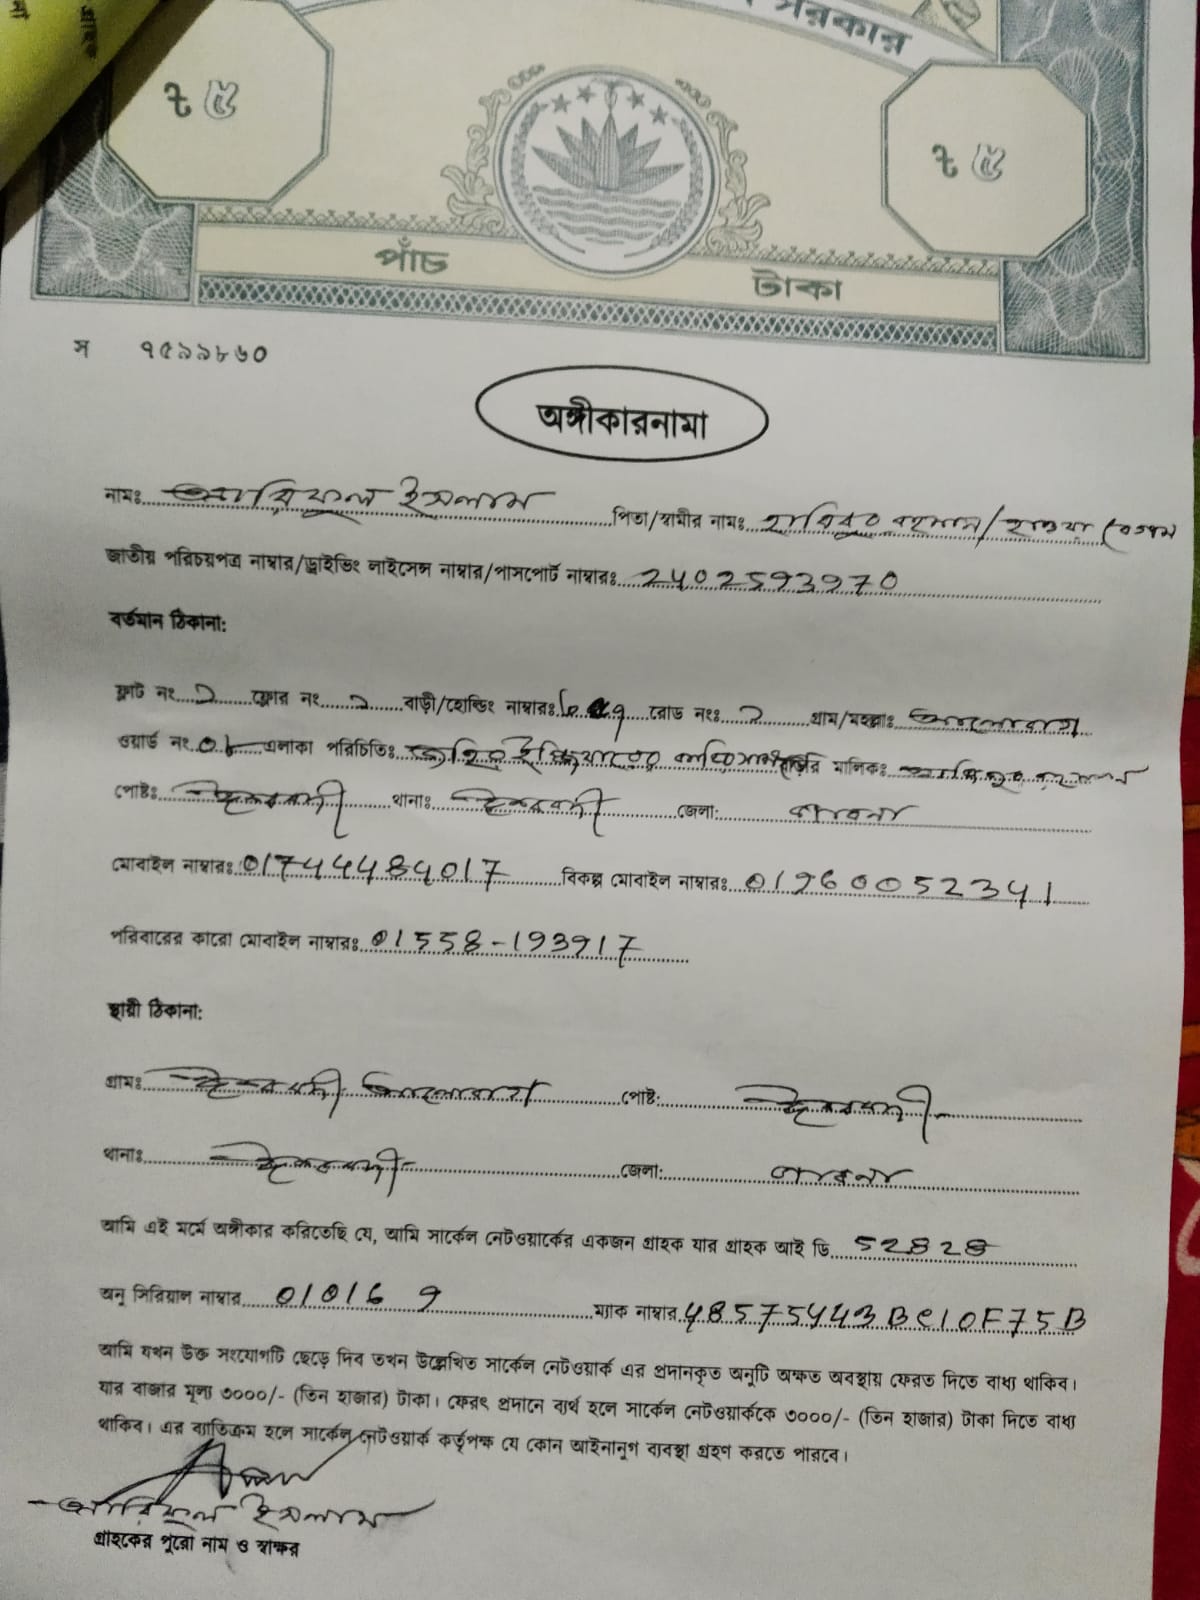 সরকার
৳ ৫
৳ ৫
পাঁচ টাকা
স ৭৫৯৯৮৬০
অঙ্গীকারনামা
নামঃ আরিফুল ইসলাম পিতা/স্বামীর নামঃ হাবিবুর রহমান/
জাতীয় পরিচয়পত্র নাম্বার/ড্রাইভিং লাইসেন্স নাম্বার/পাসপোর্ট নাম্বারঃ 2402593970
বর্তমান ঠিকানা:
ফ্লাট নং ফ্লোর নং বাড়ী/হোল্ডিং নাম্বারঃ রোড নংঃ গ্রাম/মহল্লাঃ
ওয়ার্ড নং এলাকা পরিচিতিঃ মালিকঃ
পোষ্টঃ ঈশ্বরদী থানাঃ ঈশ্বরদী জেলা: পাবনা
মোবাইল নাম্বারঃ 01744484017 বিকল্প মোবাইল নাম্বারঃ
পরিবারের কারো মোবাইল নাম্বারঃ 01558-193917
স্থায়ী ঠিকানা:
গ্রামঃ ঈশ্বরদী পোষ্ট: ঈশ্বরদী
থানাঃ ঈশ্বরদী জেলা: পাবনা
আমি এই মর্মে অঙ্গীকার করিতেছি যে, আমি সার্কেল নেটওয়ার্কের একজন গ্রাহক যার গ্রাহক আই ডি 52828
অনু সিরিয়াল নাম্বার 010169 ম্যাক নাম্বার 48575443BC10F75B
আমি যখন উক্ত সংযোগটি ছেড়ে দিব তখন উল্লেখিত সার্কেল নেটওয়ার্ক এর প্রদানকৃত অনুটি অক্ষত অবস্থায় ফেরত দিতে বাধ্য থাকিব।
যার বাজার মূল্য ৩০০০/- (তিন হাজার) টাকা। ফেরৎ প্রদানে ব্যর্থ হলে সার্কেল নেটওয়ার্ককে ৩০০০/- (তিন হাজার) টাকা দিতে বাধ্য
থাকিব। এর ব্যাতিক্রম হলে সার্কেল নেটওয়ার্ক কর্তৃপক্ষ যে কোন আইনানুগ ব্যবস্থা গ্রহণ করতে পারবে।
আরিফুল ইসলাম
গ্রাহকের পুরো নাম ও স্বাক্ষর